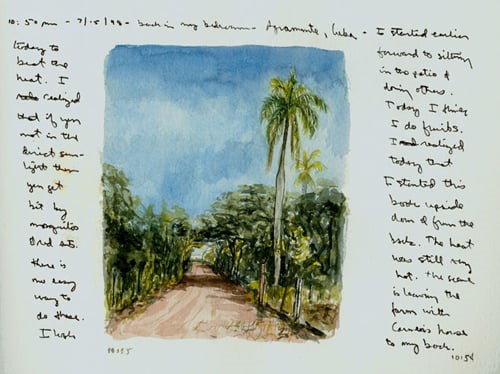 10:50 pm - 7/15/98 - back in my bedroom - Agramonte, Cuba - I started earlier
today to
beat the
heat. I
realized
that if you
not in the
direct sun-
light then
you get
bit by
mosquitos
& red ants.
there is
no easy
way to
do these.
I look
forward to sitting
in the patio &
doing others.
Today I think
I do fruits.
I realized
today that
I started this
book upside
down & from the
back. The heat
was still very
hot. The scene
is leaving the
farm with
house
to my back.
10:35
10:54